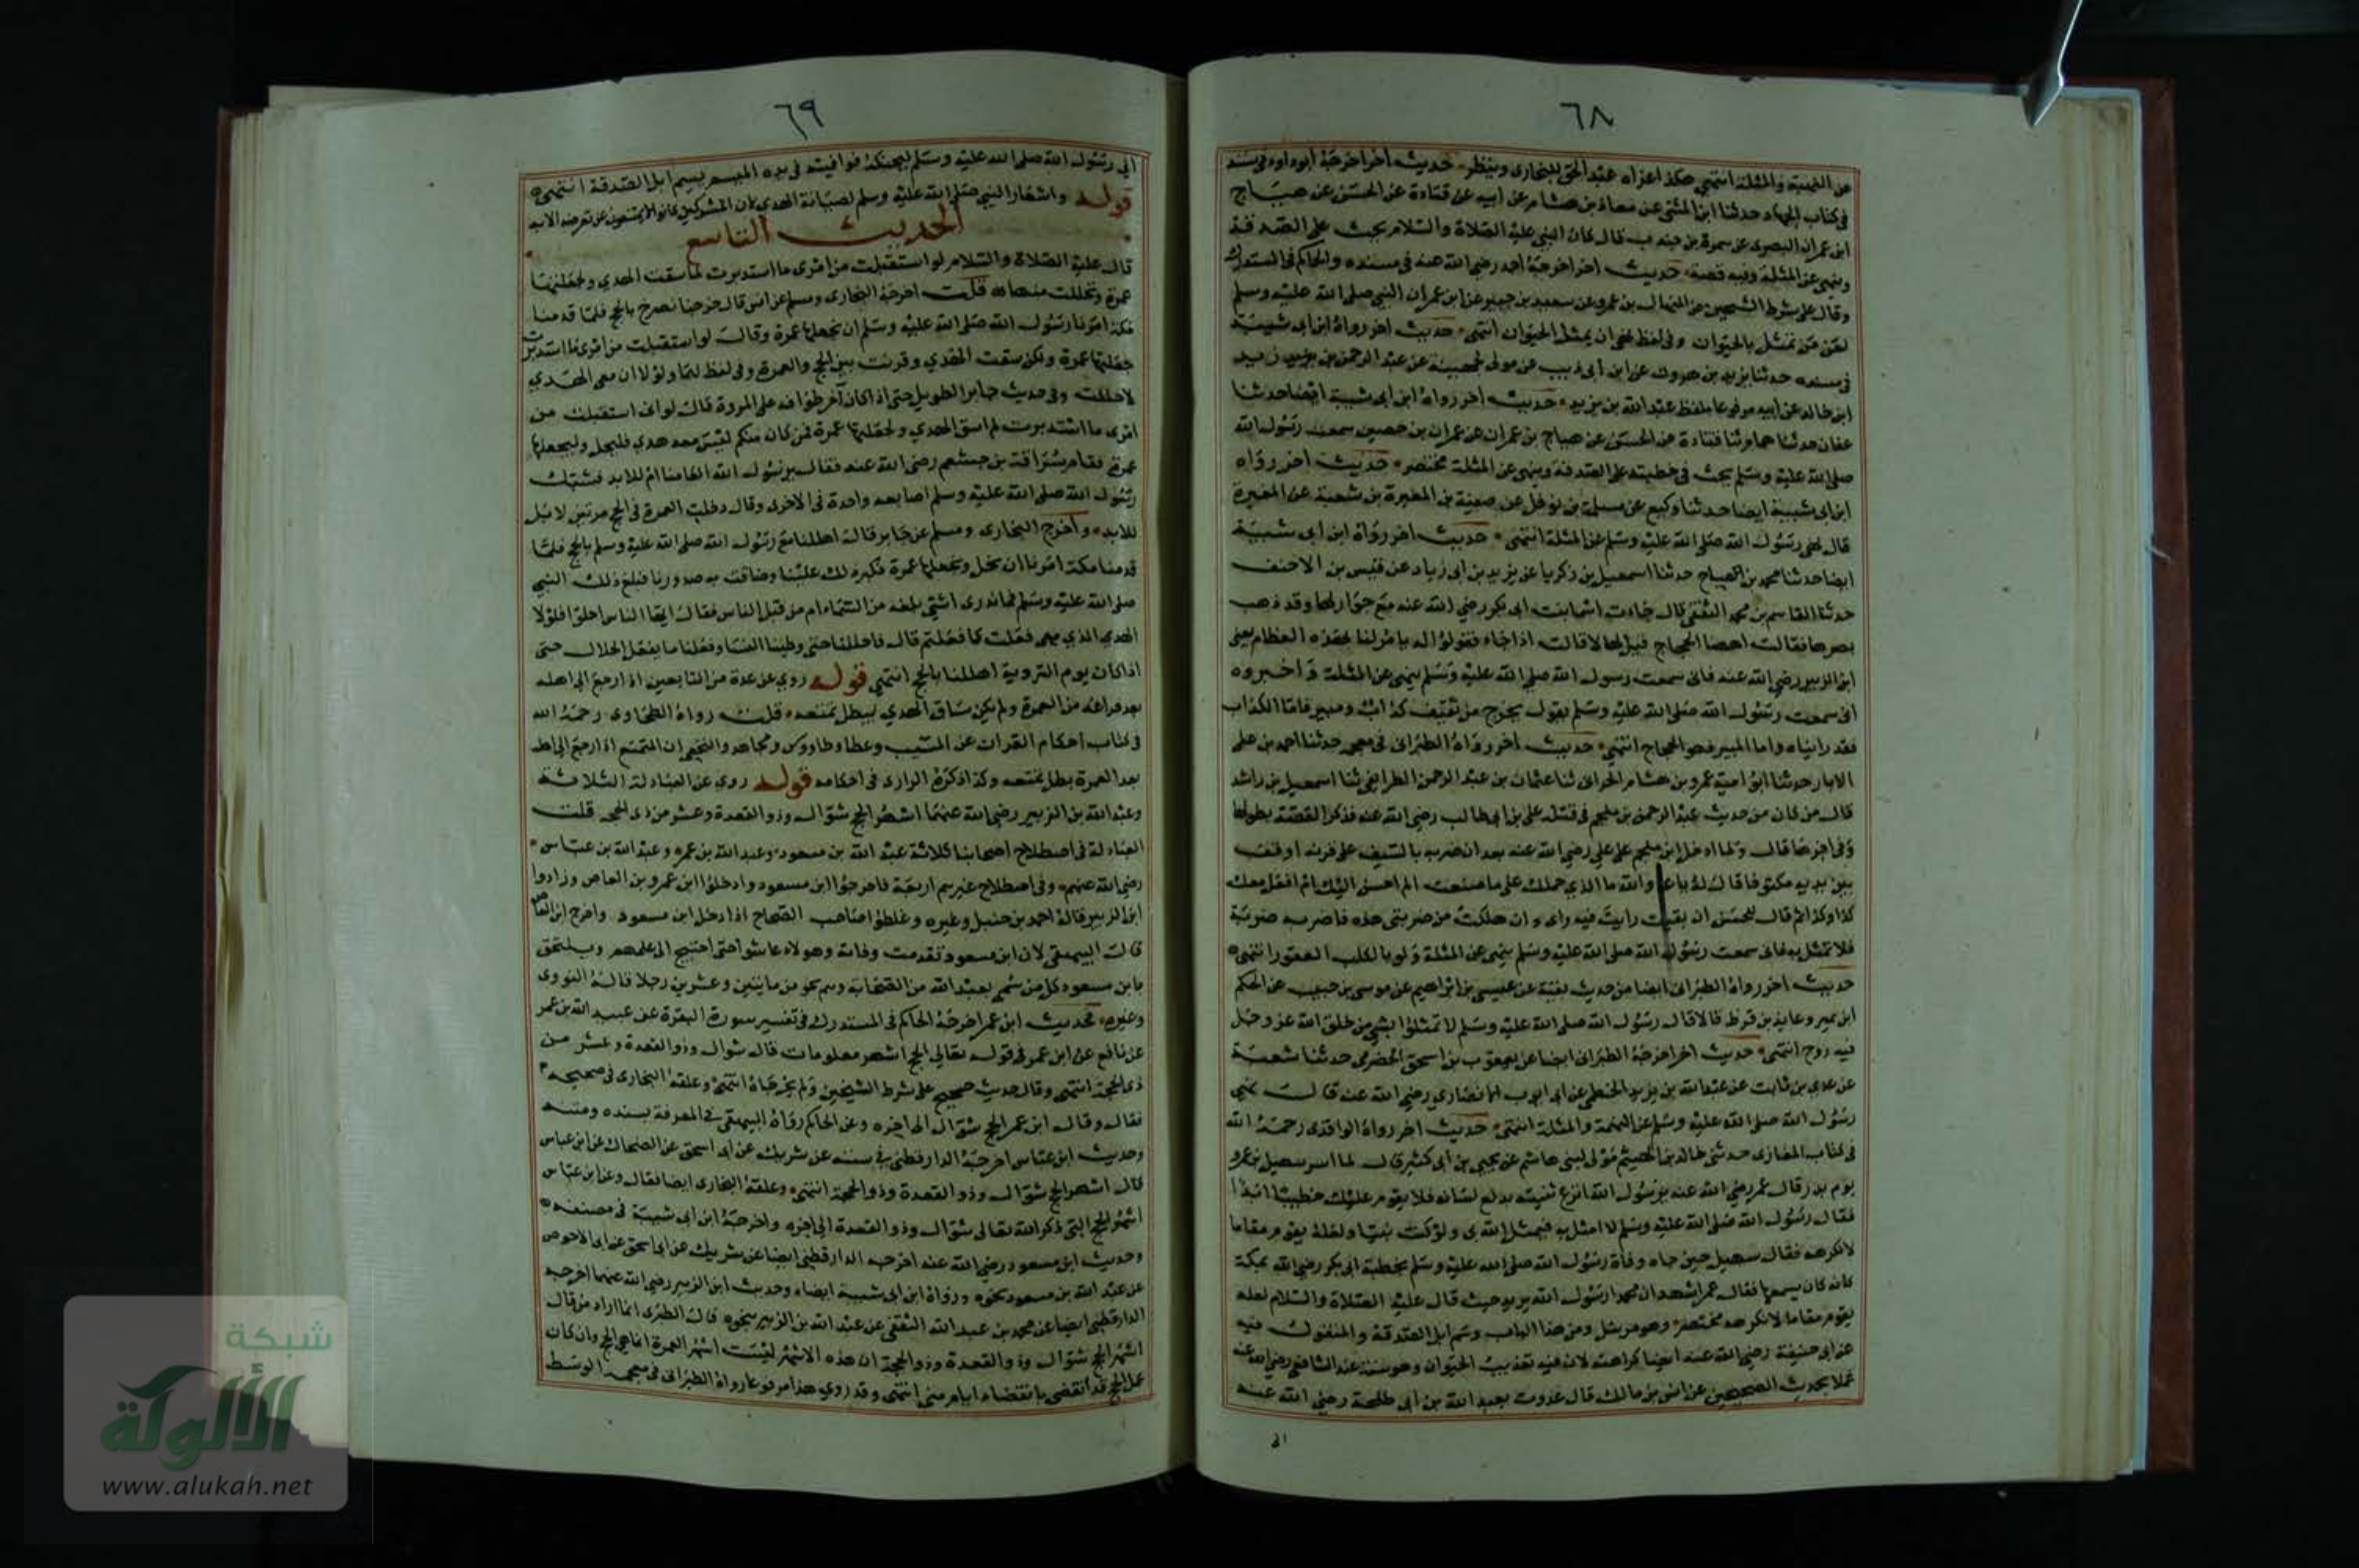 ٦٨
عن النهبة والمثلة انتهى هكذا عزاه عبد الحق للبخارى وينظر حديث اخر اخرجه أبوداود فى سننه
فى كتاب الجهاد حدثنا ابن المثنى عن معاذ بن هشام عن أبيه عن قتادة عن الحسن عن هياج
ابن عمران البصرى عن سمرة بن جندب قال كان النبي عليه الصلاة والسلام يحث على الصدقة
وينهى عن المثلة وفيه قصة حديث اخر اخرجه أحمد رضى الله عنه فى مسنده والحاكم فى المستدرك
وقال على شرط الشيخين عن المنهال بن عمرو عن سعيد بن جبير عن ابن عمر ان النبي صلى الله عليه وسلم
لعن من تمثل بالحيوان وفى لفظ نهى ان يمثل الحيوان انتهى حديث اخر رواه ابن ابى شيبة
فى مسنده حدثنا يزيد بن هرون عن ابن أبى ذيب عن مولى لجهينة عن عبد الرحمن بن يزيد زيد
ابن خالد عن أبيه مرفوعا بلفظ عبد الله بن يزيد حديث أخر رواه ابن ابى شيبة ايضا حدثنا
عفان حدثنا همام ثنا قتادة عن الحسن عن هياج بن عمران عن عمران بن حصين سمعت رسول الله
صلى الله عليه وسلم يحث فى خطبته على الصدقة وينهى عن المثلة مختصر حديث اخر رواه
ابن ابى شيبة ايضا حدثنا وكيع عن مسلمة بن نوفل عن صفية بن المغيرة بن شعبة عن المغيرة
قال نهى رسول الله صلى الله عليه وسلم عن المثلة انتهى حديث اخر رواه ابن ابى شيبة
ايضا حدثنا محمد بن الصباح حدثنا اسمعيل بن زكريا عن يزيد بن ابى زياد عن قيس بن الاحنف
حدثنا القاسم بن محمد الثقفى قال جاءت اسما بنت ابى بكر رضي الله عنه مع جوار لها وقد ذهب
بصرها فقالت اههنا الحجاج قيل لها لا قالت اذا جاء فقولوا له يامر لنا بهذه العظام يعنى
ابن الزبير رضي الله عنه فانى سمعت رسول الله صلى الله عليه وسلم ينهى عن المثلة واخبروه
انى سمعت رسول الله صلى الله عليه وسلم يقول يخرج من ثقيف كذاب ومبير فاما الكذاب
فقد رايناه واما المبير فهو الحجاج انتهى حديث أخر رواه الطبرانى فى معجمه حدثنا احمد بن على
الابار حدثنا ابو امية عمرو بن هشام الحرانى ثنا عثمان بن عبد الرحمن الطرايفى ثنا اسمعيل بن راشد
قال من كان من حديث عبد الرحمن بن ملجم فى قتله على بن ابى طالب رضى الله عنه فذكر القصة بطولها
وفى اخرها قال ولما ادخل ابن ملجم على على رضى الله عنه بعد ان ضربه بالسيف على قرنه اوقف
بين يديه مكتوفا قال له يا عدو الله ما الذي حملك على ما صنعت الم احسن اليك الم افعل معك
كذا وكذا ثم قال للحسن ان بقيت رايت فيه رايى وان هلكت من ضربتى هذه فاضربه ضربة
فلا تمثل به فانى سمعت رسول الله صلى الله عليه وسلم ينهى عن المثلة ولو بالكلب العقور انتهى
حديث اخر رواه الطبرانى ايضا من حديث بقية عن عيسى بن ابراهيم عن موسى بن حبيب عن الحكم
ابن عمير وعايذ بن قرط قالا قال رسول الله صلى الله عليه وسلم لا تمثلوا بشى من خلق الله عز وجل
فيه روح انتهى حديث اخر اخرجه الطبرانى ايضا عن يعقوب بن اسحق الحضرمى حدثنا شعبة
عن عدى بن ثابت عن عبد الله بن يزيد الخطمى عن ابى ايوب الانصارى رضى الله عنه قال نهى
رسول الله صلى الله عليه وسلم عن النهبة والمثلة انتهى حديث اخر رواه الواقدى رحمه الله
فى كتاب المغازى حدثنى خالد بن الهيثم مولى لبنى هاشم عن يحيى بن ابى كثير قال لما اسر سهيل بن عمرو
يوم بدر قال عمر رضى الله عنه يرسول الله انزع ثنيته يدلع لسانه فلا يقوم عليك خطيبا ابدا
فقال رسول الله صلى الله عليه وسلم لا امثل به فيمثل الله بى ولو كنت نبيا ولعله يقوم مقاما
لا تكرهه فقال سهيل حين جاه وفاة رسول الله صلى الله عليه وسلم بخطبة ابى بكر رضى الله بمكة
كانه كان يسمعها فقال عمر اشهد ان محمدا رسول الله يريد حيث قال عليه الصلاة والسلام لعله
يقوم مقاما لا تكرهه مختصر وهو مرسل ومن هذا الباب وسم ابل الصدقة والمنقول فيه
عن ابى حنيفة رضى الله عنه ايضا كراهته لان فيه تعذيب الحيوان وهو سنة عند الشافعى رضى الله عنه
عملا بحديث الصحيحين عن انس بن مالك قال غدوت بعبد الله بن أبى طلحة رضى الله عنه
الى
٦٩
الى رسول الله صلى الله عليه وسلم ليحنكه فوافيته فى يده الميسم يسم ابل الصدقة انتهى
قوله واشعار النبى صلى الله عليه وسلم لصيانة الهدى لان المشركين كانوا لا يمتنعون عن تعرضه الا به
الحديث التاسع
قال عليه الصلاة والسلام لو استقبلت من امرى ما استدبرت لما سقت الهدي ولجعلتها
عمرة وتحللت منها قلت اخرجه البخارى ومسلم عن انس قال خرجنا نصرخ بالحج فلما قدمنا
مكة امرنا رسول الله صلى الله عليه وسلم ان نجعلها عمرة وقال لو استقبلت من امرى ما استدبرت
جعلتها عمرة ولكن سقت الهدي وقرنت بين الحج والعمرة وفى لفظ لهما ولولا ان معى الهدي
لاحللت وفى حديث جابر الطويل حتى اذا كان آخر طوافه على المروة قال لو انى استقبلت من
امرى ما استدبرت لم اسق الهدي ولجعلتها عمرة فمن كان منكم ليس معه هدي فليحل وليجعلها
عمرة فقام سراقة بن جعشم رضى الله عنه فقال يرسول الله العامنا ام للابد فشبك
رسول الله صلى الله عليه وسلم اصابعه واحدة فى الاخرى وقال دخلت العمرة فى الحج مرتين لا بل
للابد واخرج البخارى ومسلم عن جابر قال اهللنا مع رسول الله صلى الله عليه وسلم بالحج فلما
قدمنا مكة امرنا ان نحل ونجعلها عمرة فكبر ذلك علينا وضاقت به صدورنا فبلغ ذلك النبي
صلى الله عليه وسلم فما ندرى اشئ بلغه من السماء ام من قبل الناس فقال ايها الناس احلوا فلولا
الهدي الذي معى فعلت كما فعلتم قال فاحللنا حتى وطينا النساء وفعلنا ما يفعل الحلال حتى
اذا كان يوم التروية اهللنا بالحج انتهى قوله روي عن عدة من التابعين اذا رجع الى اهله
بعد فراغه من العمرة ولم يكن ساق الهدي يبطل تمتعه قلت رواه الطحاوى رحمه الله
فى كتاب احكام القرآن عن المسيب وعطا وطاووس ومجاهد والنخعى ان المتمتع اذا رجع الى اهله
بعد العمرة بطل تمتعه وكذا ذكره الرازى فى احكامه قوله روي عن العبادلة الثلاثة
وعبد الله بن الزبير رضى الله عنهما اشهر الحج شوال وذو القعدة وعشر من ذى الحجه قلت
العبادلة فى اصطلاح اصحابنا ثلاثة عبد الله بن مسعود وعبد الله بن عمر وعبد الله بن عباس
رضى الله عنهم وفى اصطلاح غيرهم اربعة فاخرجوا ابن مسعود وادخلوا ابن عمرو بن العاص وزادوا
ابن الزبير قاله احمد بن حنبل وغيره وغلطوا صاحب الصحاح اذ ادخل ابن مسعود واخرج ابن العاص
قال البيهقى لان ابن مسعود تقدمت وفاته وهولاء عاشوا حتى احتيج الى علمهم ويلتحق
بابن مسعود كل من سمى بعبد الله من الصحابة وهم نحو من مايتين وعشرين رجلا قاله النووى
وغيره فحديث ابن عمر اخرجه الحاكم فى المستدرك فى تفسير سورة البقرة عن عبيد الله بن عمر
عن نافع عن ابن عمر فى قوله تعالى الحج اشهر معلومات قال شوال وذو القعدة وعشر من
ذى الحجة انتهى وقال حديث صحيح على شرط الشيخين ولم يخرجاه انتهى وعلقه البخارى فى صحيحه
فقال وقال ابن عمر الحج شوال الى اخره وعن الحاكم رواه البيهقى فى المعرفة بسنده ومتنه
وحديث ابن عباس اخرجه الدارقطنى فى سننه عن شريك عن ابى اسحق عن الضحاك عن ابن عباس
قال اشهر الحج شوال وذو القعدة وذو الحجة انتهى وعلقه البخارى ايضا فقال وعن ابن عباس
اشهر الحج التى ذكر الله تعالى شوال وذو القعدة الى اخره واخرجه ابن ابى شيبة فى مصنفه
وحديث ابن مسعود رضى الله عنه اخرجه الدارقطنى ايضا عن شريك عن ابى اسحق عن ابى الاحوص
عن عبد الله بن مسعود نحوه ورواه ابن ابى شيبة ايضا وحديث ابن الزبير رضى الله عنهما اخرجه
الدارقطنى ايضا عن محمد بن عبيد الله الثقفى عن عبد الله بن الزبير نحوه قال الطبرى انما اراد من قال
اشهر الحج شوال وذو القعدة وذو الحجة ان هذه الاشهر ليست اشهر العمرة انما هى الحج وان كان
عمل الحج قد انقضى بانقضاء ايام منى انتهى وقد روي هذا مرفوعا رواه الطبرانى فى معجمه الوسط
شبكة
الألوكة
www.alukah.net